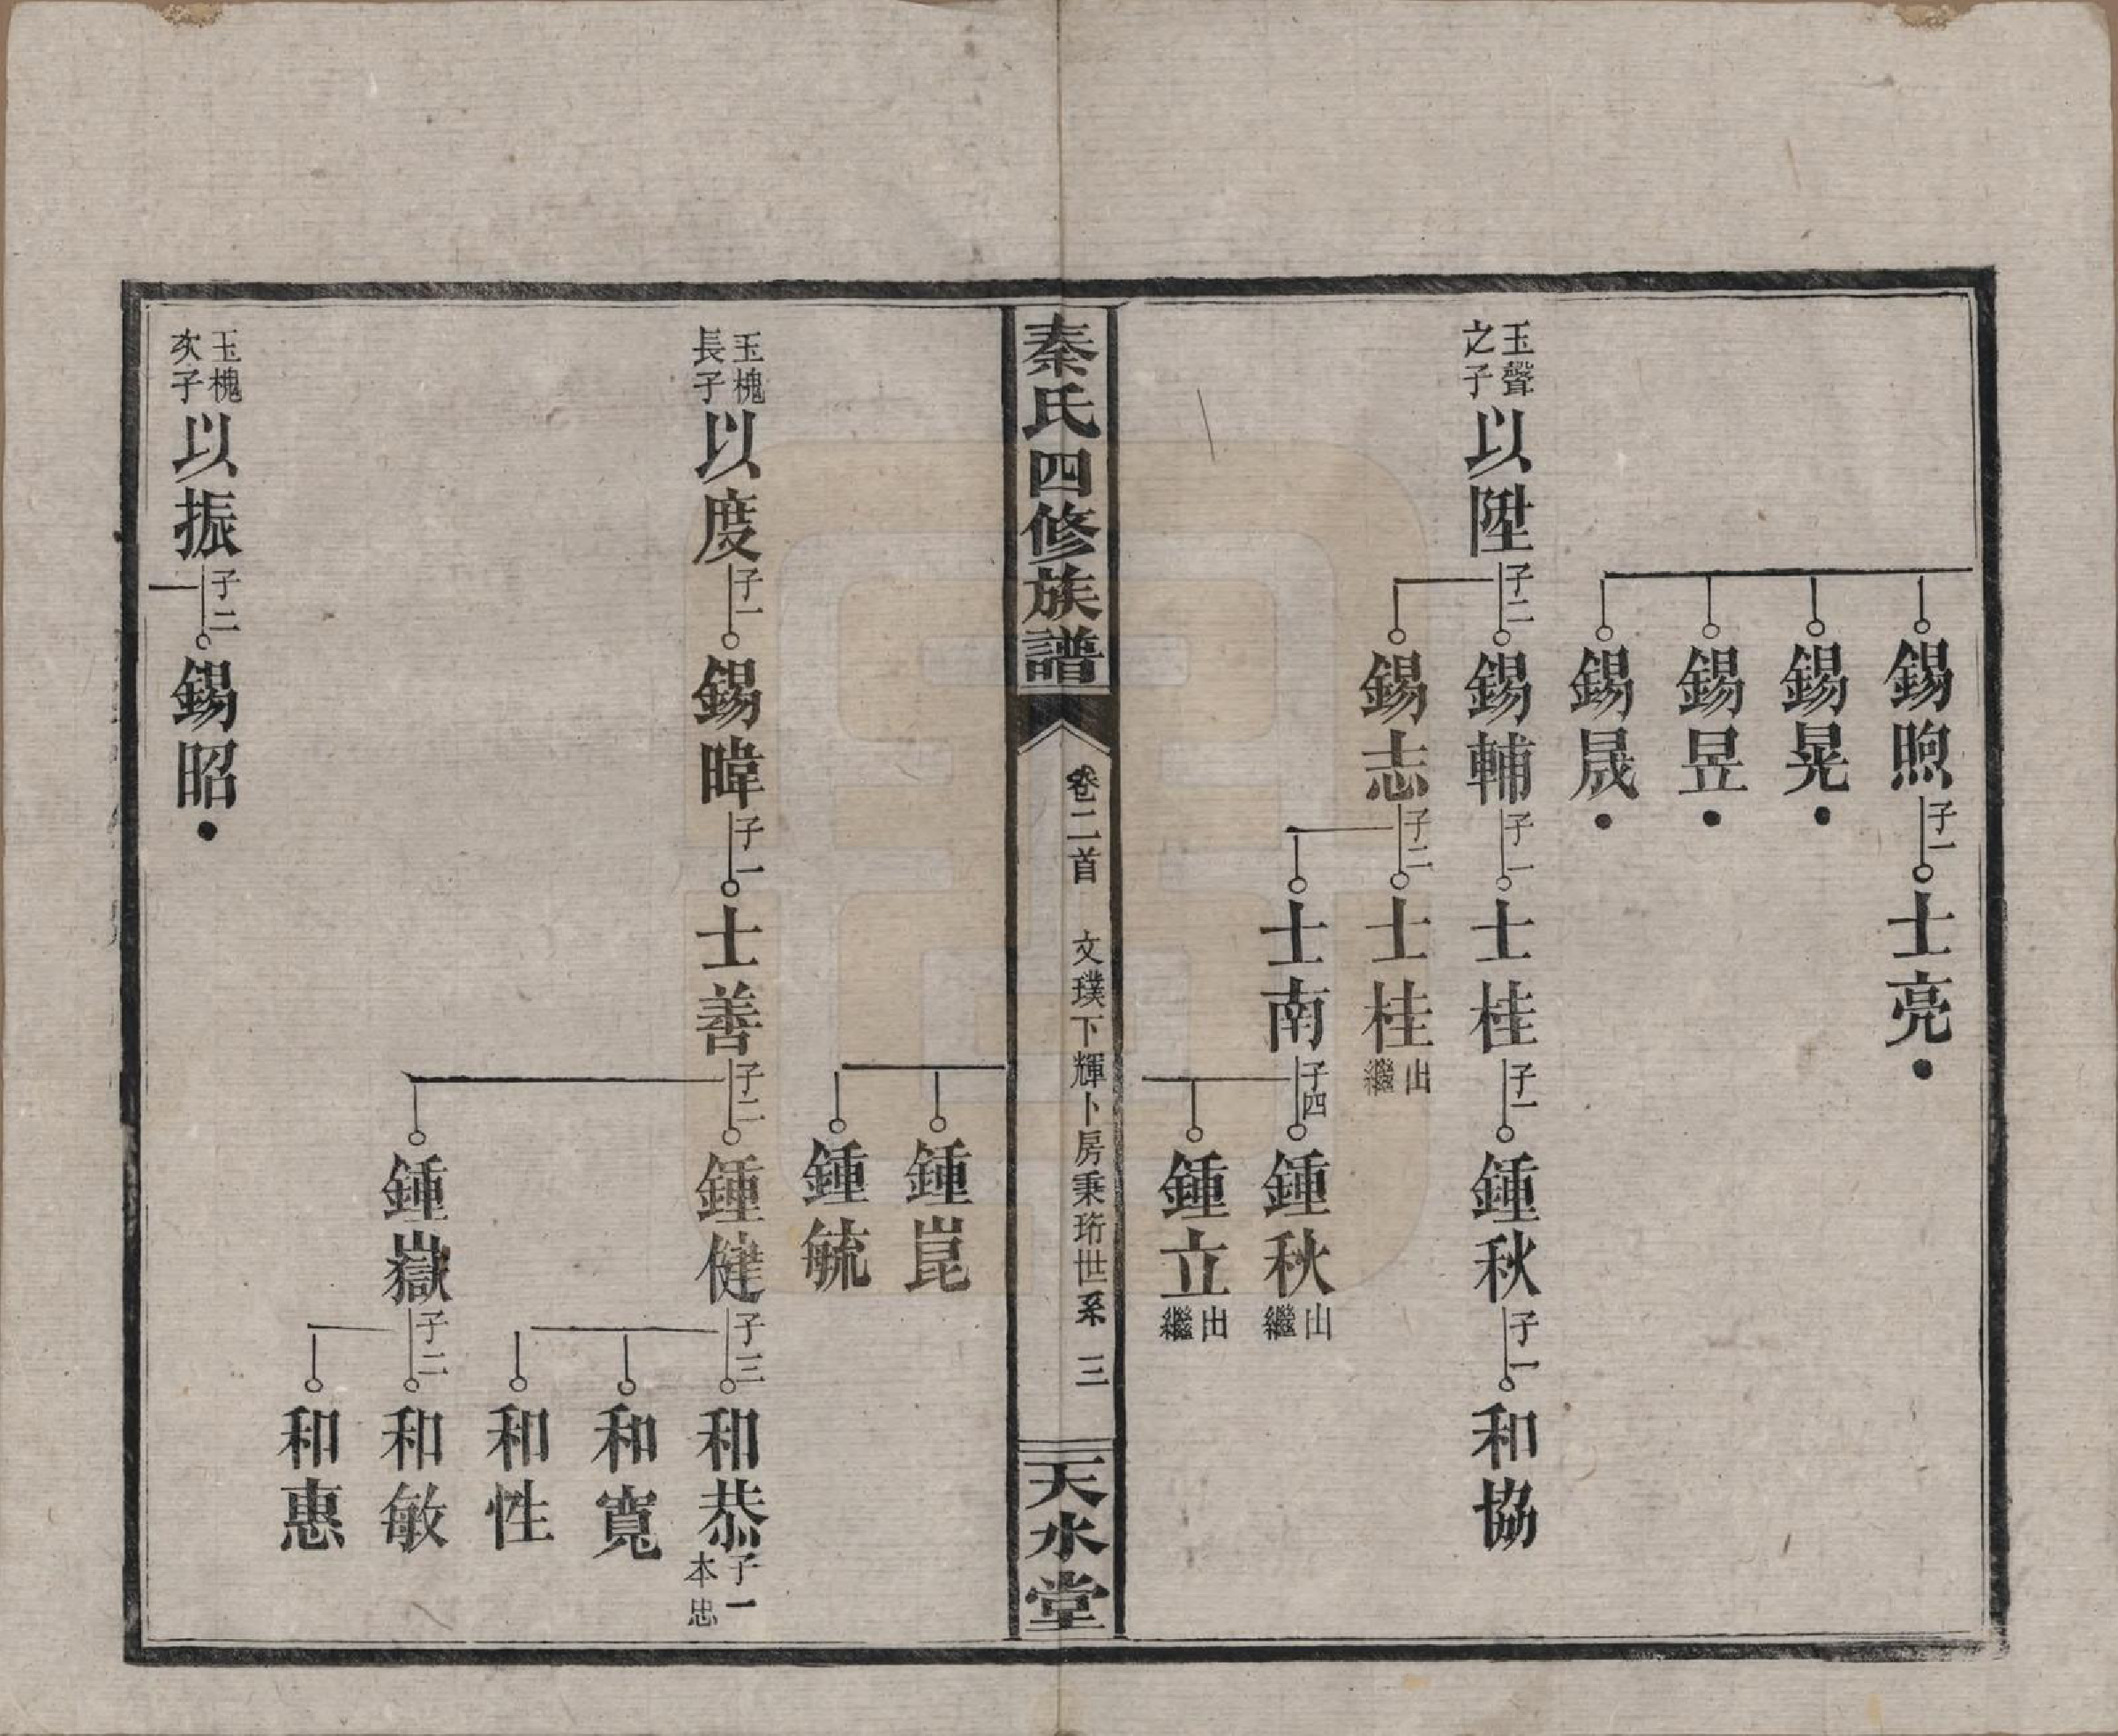 錫煦 子一 士亮
錫晃
錫昱
錫晟
玉聲之子 以陞 子二 錫輔 子一 士桂 子一 鍾秋 子一 和協
錫志 子二 士桂 出繼
士南 子四 鍾秋 出繼
鍾立 出繼
秦氏四修族譜 卷二首 文璞下輝卜房秉珩世系 三 天水堂
鍾崑
鍾毓
玉槐長子 以度 子一 錫暐 子一 士善 子二 鍾健 子三 和恭 子一本忠
和寬
和性
鍾嶽 子二 和敏
和惠
玉槐次子 以振 子二 錫昭